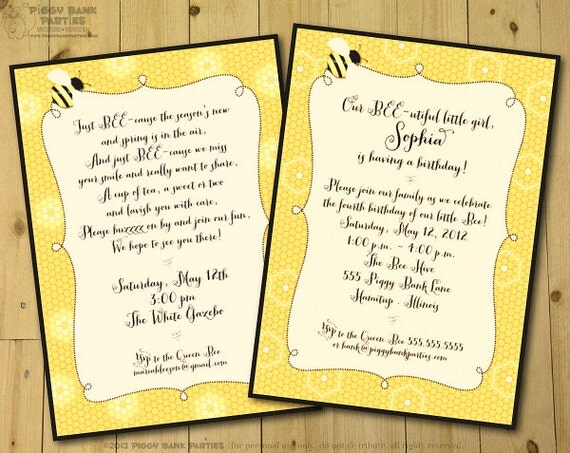 PIGGY BANK
PARTIES
WWW.PIGGYBANKPARTIES.COM
Just BEE-cause the season's new
and spring is in the air,
And just BEE-cause we miss
your smile and really want to share,
A cup of tea, a sweet or two
and lavish you with care,
Please buzzzzz on by and join our fun,
We hope to see you there!
Saturday, May 12th
3:00 pm
The White Gazebo
Rsvp to the Queen Bee
Our BEE-utiful little girl,
Sophia
is having a birthday!
Please join our family as we celebrate
the fourth birthday of our little Bee!
Saturday, May 12, 2012
1:00 p.m. - 4:00 p.m.
The Bee Hive
555 Piggy Bank Lane
Hamitup, Illinois
Rsvp to the Queen Bee 555.555.5555
or hank@piggybankparties.com
©2013 PIGGY BANK PARTIES {for personal use only. do not distribute. all rights reserved.}